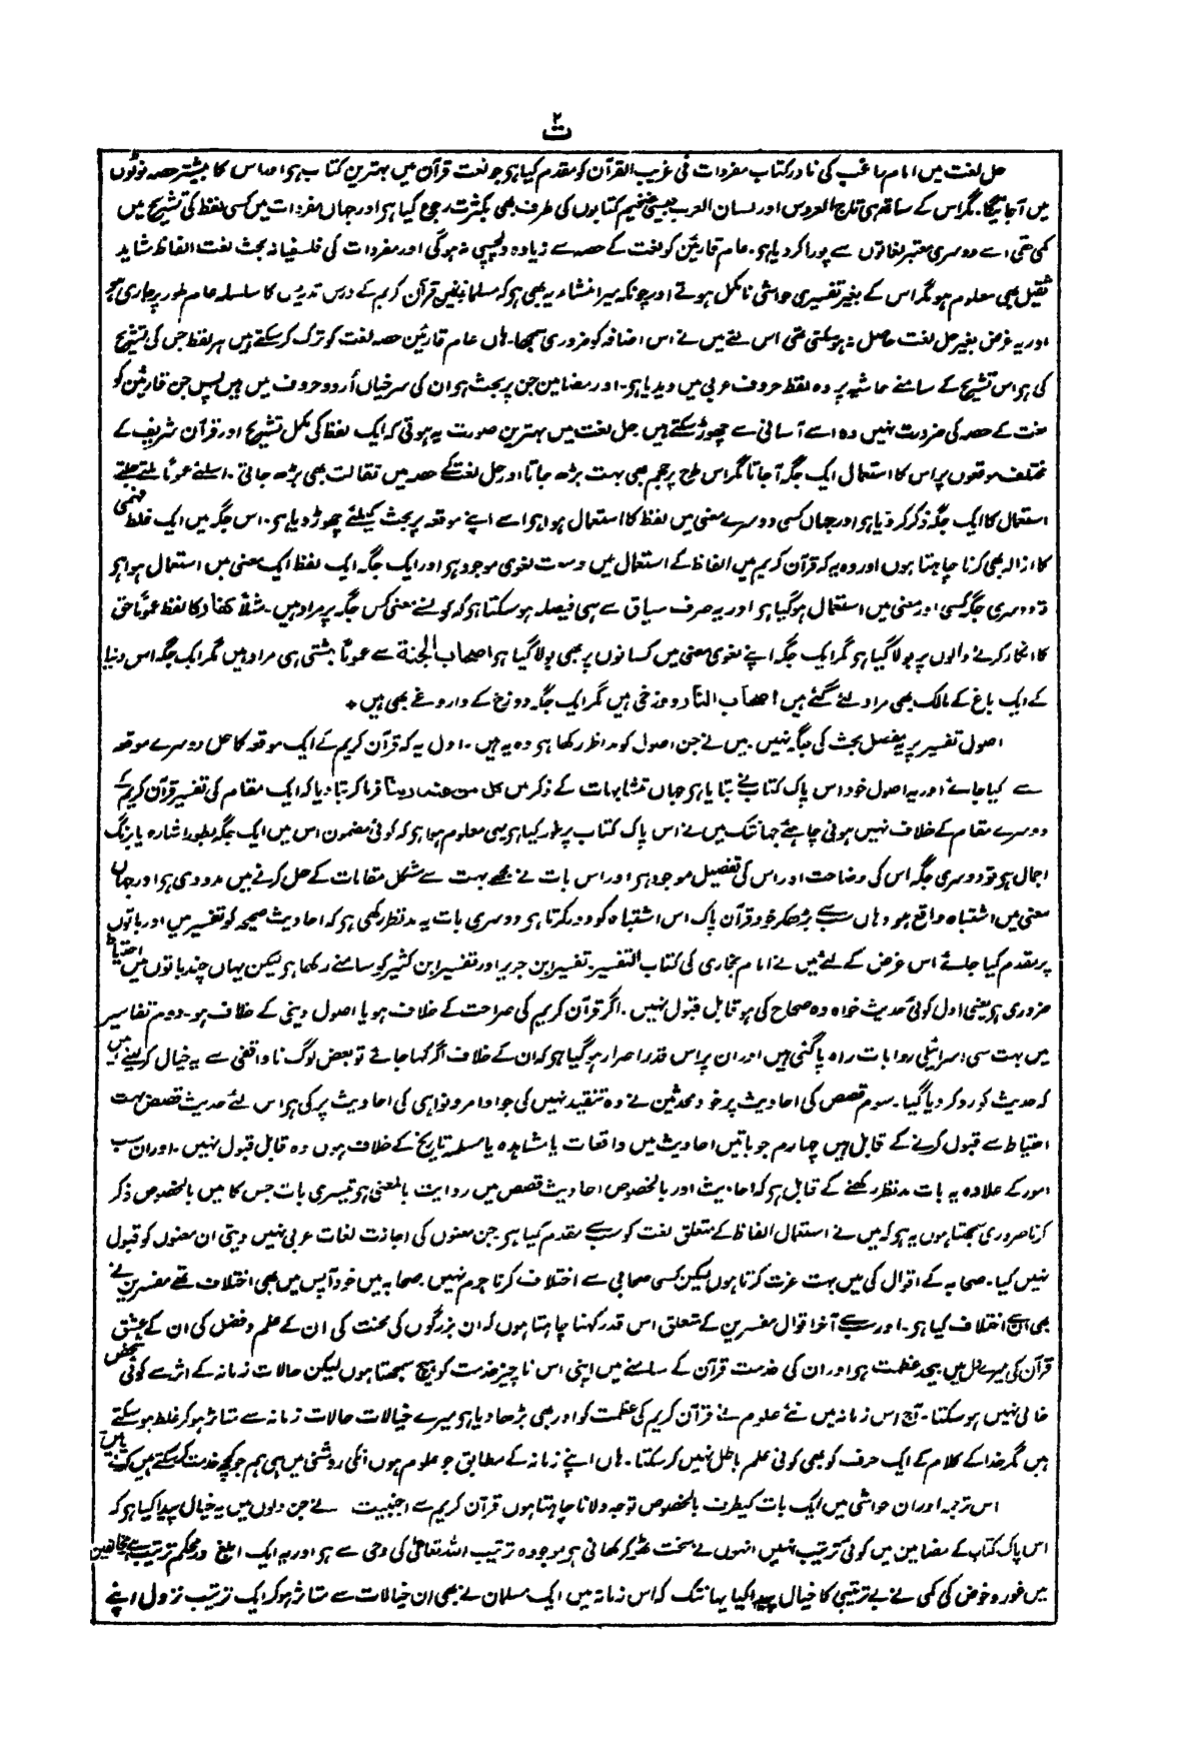 ت ۲
حل لغت میں امام راغب کی نادر کتاب مفردات فی غریب القرآن کو مقدم کیا ہو جو لغت قرآن میں بہترین کتاب ہو اور اس کا بیشتر حصہ نوٹوں
میں آجائیگا۔ مگر اس کے ساتھ ہی تاج العروس اور لسان العرب جیسی ضخیم کتابوں کی طرف بھی بکثرت رجوع کیا ہو اور جہاں مفردات میں کسی لفظ کی تشریح میں
کمی تھی اسے دوسری معتبر لغاتوں سے پورا کر دیا ہو۔ عام قارئین کو لغت کے حصہ سے زیادہ دلچسپی نہ ہوگی اور مفردات کی فلسفیانہ بحث لغت الفاظ شاید
ثقیل بھی معلوم ہو مگر اس کے بغیر تفسیری حواشی نامکمل ہوتے اور چونکہ میرا منشاء یہ بھی ہو کہ مسلمانوں میں قرآن کریم کے درس تدریس کا سلسلہ عام طور پر جاری ہو
اور یہ غرض بغیر حل لغت حاصل نہ ہو سکتی تھی اس لئے میں نے اس اضافہ کو ضروری سمجھا۔ ہاں عام قارئین حصہ لغت کو ترک کر سکتے ہیں ہر لفظ جس کی تشریح
کی ہو اس تشریح کے سامنے حاشیہ پر وہ لفظ حروف عربی میں دیدیا ہو۔ اور مضامین جن پر بحث ہو ان کی سرخیاں اُردو حروف میں ہیں پس جن قارئین کو
لغت کے حصہ کی ضرورت نہیں وہ اسے آسانی سے چھوڑ سکتے ہیں۔ حل لغت میں بہترین صورت یہ ہوتی کہ ایک لفظ کی مکمل تشریح اور قرآن شریف کے
مختلف موقعوں پر اس کا استعمال ایک جگہ آجاتا مگر اس طرح پر حجم بھی بہت بڑھ جاتا اور حل لغت کے حصہ میں ثقالت بھی بڑھ جاتی۔ اسلئے عموماً ملتے جلتے
استعمال کا ایک جگہ ذکر کر دیا ہو اور جہاں کسی دوسرے معنی میں لفظ کا استعمال ہوا ہو اسے اپنے موقعہ پر بحث کیلئے چھوڑ دیا ہو۔ اس جگہ میں ایک غلط فہمی
کا ازالہ بھی کرنا چاہتا ہوں اور وہ یہ کہ قرآن کریم میں الفاظ کے استعمال میں وسعت لغوی موجود ہو اور ایک جگہ ایک لفظ ایک معنی میں استعمال ہوا ہو
تو دوسری جگہ کسی اور معنی میں استعمال ہو گیا ہو اور یہ صرف سیاق سے ہی فیصلہ ہو سکتا ہو کہ کونسے معنی کس جگہ پر مراد ہیں۔ مثلاً کفار کا لفظ عموماً حق
کا انکار کرنے والوں پر بولا گیا ہو مگر ایک جگہ اپنے لغوی معنی میں کسانوں پر بھی بولا گیا ہو اصحاب الجنة سے عموماً بہشتی ہی مراد ہیں مگر ایک جگہ اس دنیا
کے ایک باغ کے مالک بھی مراد لئے گئے ہیں۔ اصحاب النار دوزخی ہیں مگر ایک جگہ دوزخ کے داروغے بھی ہیں ٭
اصول تفسیر پر مفصل بحث کی جگہ نہیں۔ میں نے جن اصول کو مدنظر رکھا ہو وہ یہ ہیں۔ اول یہ کہ قرآن کریم کے ایک موقعہ کا حل دوسرے موقعہ
سے کیا جائے اور یہ اصول خود اس پاک کتاب نے بتایا ہو جہاں متشابہات کے ذکر میں کل من عند ربنا فرما کر بتا دیا کہ ایک مقام کی تفسیر قرآن کریم کے
دوسرے مقام کے خلاف نہیں ہونی چاہئے جہانتک میں نے اس پاک کتاب پر غور کیا ہو یہی معلوم ہوا ہو کہ کوئی مضمون اس میں ایک جگہ بطور اشارہ یا برنگ
اجمال ہو تو دوسری جگہ اس کی وضاحت اور اس کی تفصیل موجود ہو اور اس بات نے مجھے بہت سے مشکل مقامات کے حل کرنے میں مدد دی ہو اور جہاں
معنی میں اشتباہ واقع ہو وہاں سب سے بڑھکر خود قرآن پاک اس اشتباہ کو دور کرتا ہو دوسری بات یہ مدنظر رکھی ہو کہ احادیث صحیحہ کو تفسیر میں اور باتوں
پر مقدم کیا جائے اس غرض کے لئے میں نے امام بخاری کی کتاب التفسیر تفسیر ابن جریر اور تفسیر ابن کثیر کو سامنے رکھا ہو لیکن یہاں چند باتوں میں احتیاط
ضروری ہو یعنی اول کوئی حدیث خواہ وہ صحاح کی ہو قابل قبول نہیں۔ اگر قرآن کریم کی صراحت کے خلاف ہو یا اصول دینی کے خلاف ہو۔ دوم تفاسیر
میں بہت سی اسرائیلی روایات راہ پاگئی ہیں اور ان پر اس قدر اصرار ہو گیا ہو کہ ان کے خلاف اگر کہا جائے تو بعض لوگ ناواقفی سے یہ خیال کر لیتے ہیں
کہ حدیث کو رد کر دیا گیا۔ سوم قصص کی احادیث پر خود محدثین نے وہ تنقید نہیں کی جو اوامر و نواہی کی احادیث پر کی ہو اس لئے حدیث قصص بہت
احتیاط سے قبول کرنے کے قابل ہیں چہارم جو باتیں احادیث میں واقعات یا مشاہدہ یا مسلمہ تاریخ کے خلاف ہوں وہ قابل قبول نہیں۔ اور ان سب
امور کے علاوہ یہ بات مدنظر رکھنے کے قابل ہو کہ احادیث اور بالخصوص احادیث قصص میں روایت بالمعنی ہو تیسری بات جس کا میں بالخصوص ذکر
کرنا ضروری سمجھتا ہوں یہ ہو کہ میں نے استعمال الفاظ کے متعلق لغت کو سب سے مقدم کیا ہو جن معنوں کی اجازت لغات عربی نہیں دیتی ان معنوں کو قبول
نہیں کیا۔ صحابہ کے اقوال کی میں بہت عزت کرتا ہوں لیکن کسی صحابی سے اختلاف کرنا جرم نہیں۔ صحابہ میں خود آپس میں بھی اختلاف تھے مفسرین نے
بھی ان سے اختلاف کیا ہو۔ اور سب سے آخر اقوال مفسرین کے متعلق اس قدر کہنا چاہتا ہوں کہ ان بزرگوں کی محنت کی ان کے علم و فضل کی ان کے عشق
قرآن کی میرے دل میں بیحد عظمت ہو اور ان کی خدمت قرآن کے سامنے میں اپنی اس ناچیز خدمت کو ہیچ سمجھتا ہوں لیکن حالات زمانہ کے اثر سے کوئی شخص
خالی نہیں ہو سکتا۔ آج اس زمانہ میں نئے علوم نے قرآن کریم کی عظمت کو اور بھی بڑھا دیا ہو میرے خیالات حالات زمانہ سے متاثر ہو کر غلط ہو سکتے
ہیں مگر خدا کے کلام کے ایک حرف کو بھی کوئی علم باطل نہیں کر سکتا۔ ہاں اپنے زمانہ کے مطابق جو علوم ہوں انکی روشنی میں ہی ہم جو کچھ خدمت کر سکتے ہیں کرتے ہیں
اس ترجمہ اور ان حواشی میں ایک بات کیطرف بالخصوص توجہ دلانا چاہتا ہوں قرآن کریم سے اجنبیت نے جن دلوں میں یہ خیال پیدا کیا ہو کہ
اس پاک کتاب کے مضامین میں کوئی ترتیب نہیں انہوں نے سخت ٹھوکر کھائی ہو موجودہ ترتیب اللہ تعالیٰ کی وحی سے ہو اور یہ ایک ابلغ و محکم ترتیب ہے مخالفین
میں غور و خوض کی کمی نے بے ترتیبی کا خیال پیدا کیا یہانتک کہ اس زمانہ میں ایک مسلمان نے بھی ان خیالات سے متاثر ہو کر ایک ترتیب نزول اپنے